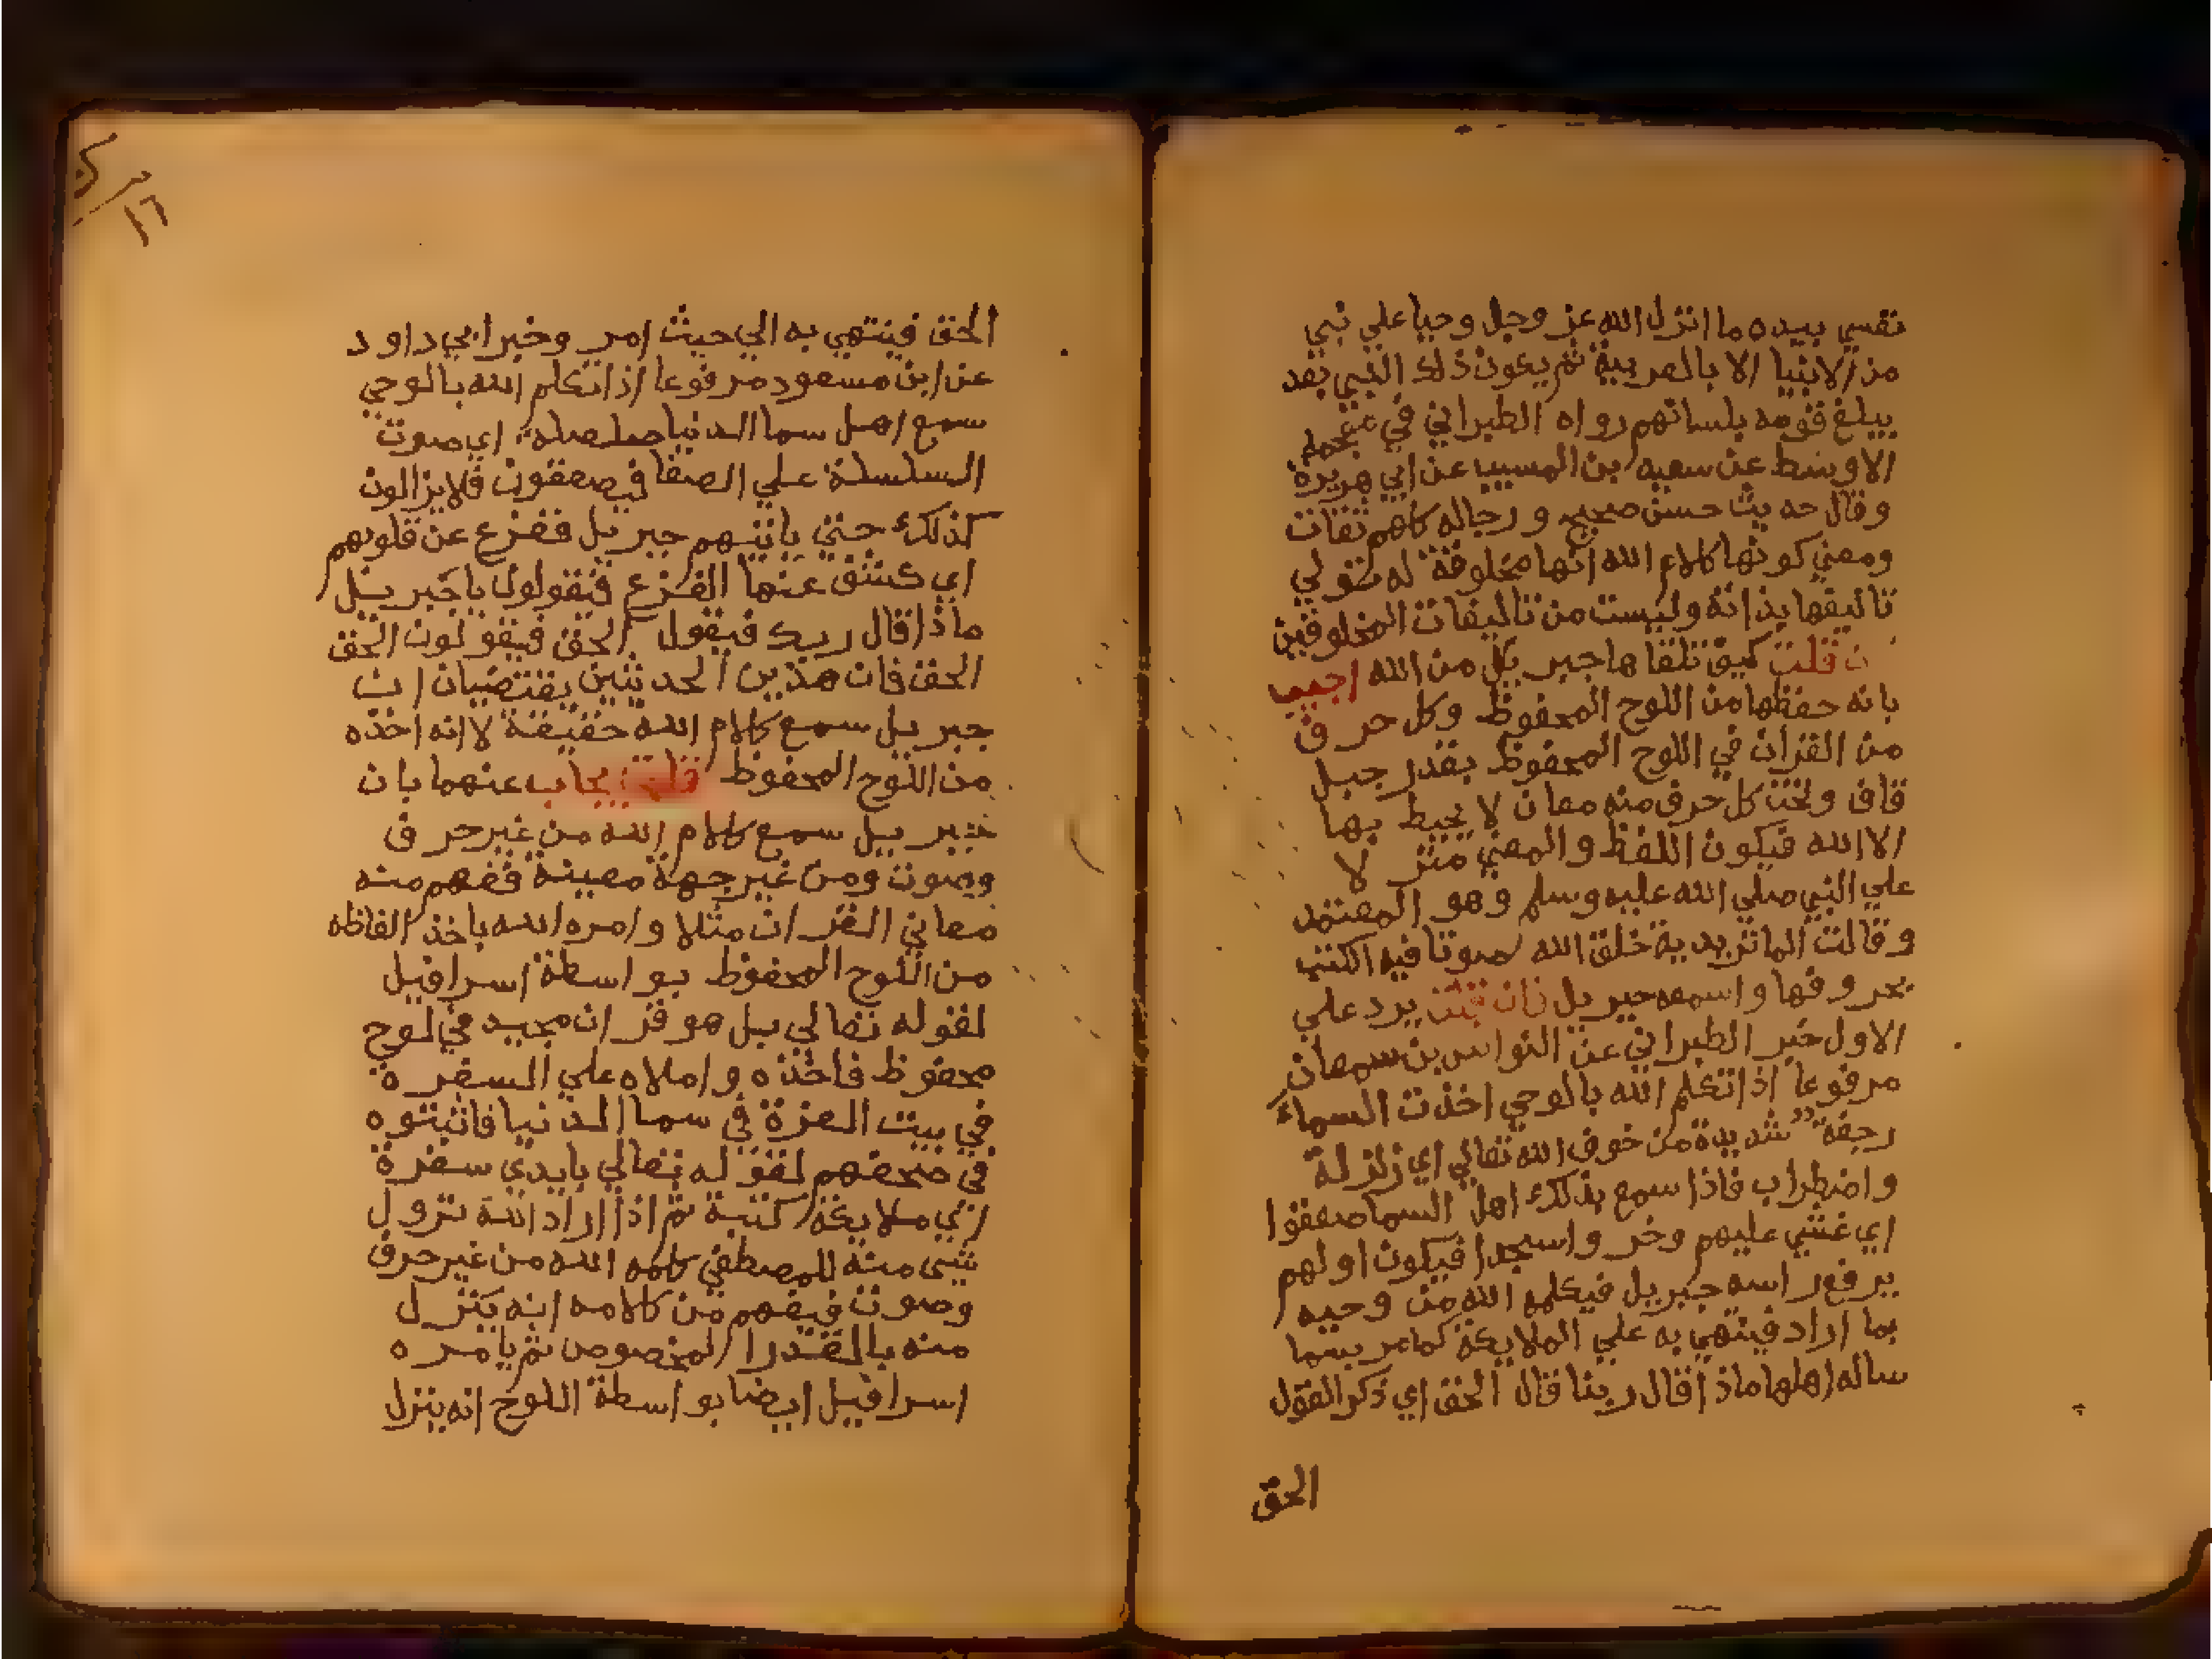 نفسي بيده ما انزل الله عز وجل وحيا علي نبي
من الانبيا الا بالعربية ثم يكون ذلك النبي بعد
يبلغ قومه بلسانهم رواه الطبراني في معجمه
الاوسط عن سعيد بن المسيب عن ابي هريرة
وقال حديث حسن صحيح ورجاله كلهم ثقات
ومعني كونها كلام الله انها مخلوقة له تولي
تاليفها بذاته وليست من تاليفات المخلوقين
ن قلت كيف تلقاها جبريل من الله اجيب
بانه حفظها من اللوح المحفوظ وكل حرف
من القران في اللوح المحفوظ بقدر جبل
قاف وتحت كل حرف منه معان لا يحيط بها
الا الله فيكون اللفظ والمعني منزلا
علي النبي صلي الله عليه وسلم وهو المعتمد
وقالت الماتريدية خلق الله صوتا فيه الكتب
بحروفها واسمعه جبريل فان قلت يرد علي
الاول خبر الطبراني عن النواس بن سمعان
مرفوعا اذا تكلم الله بالوحي اخذت السماء
رجفة شديدة من خوف الله تعالي اي زلزلة
واضطراب فاذا سمع بذلك اهل السما صعقوا
اي غشي عليهم وخروا سجدا فيكون اولهم
يرفع راسه جبريل فيكلمه الله من وحيه
بما اراد فينتهي به علي الملايكة كما مر بسما
ساله اهلها ماذا قال ربنا قال الحق اي ذكر القول
الحق
١٦
الحق فينتهي به الي حيث امر وخبر ابي داود
عن ابن مسعود مرفوعا اذا تكلم الله بالوحي
سمع اهل سما الدنيا صلصلة اي صوت
السلسلة علي الصفا فيصعقون فلا يزالون
كذلك حتي ياتيهم جبريل ففزع عن قلوبهم
اي كشف عنها الفزع فيقولون يا جبريل
ماذا قال ربك فيقول الحق فيقولون الحق
الحق فان هذين الحديثين يقتضيان ان
جبريل سمع كلام الله حقيقة لا انه اخذه
من اللوح المحفوظ قلت يجاب عنهما بان
جبريل سمع كلام الله من غير حرف
وصوت ومن غير جهة معينة ففهم منه
معاني القران مثلا وامره الله باخذ الفاظه
من اللوح المحفوظ بواسطة اسرافيل
لقوله تعالي بل هو قران مجيد في لوح
محفوظ فاخذه واملاه علي السفرة
في بيت العزة في سما الدنيا فاثبتوه
في صحفهم لقوله تعالي بايدي سفرة
اي ملايكة كتبة ثم اذا اراد الله نزول
شي منه للمصطفي كلمه الله من غير حرف
وصوت فيفهم من كلامه انه ينزل
منه بالقدر المخصوص ثم يامره
اسرافيل ايضا بواسطة اللوح انه ينزل